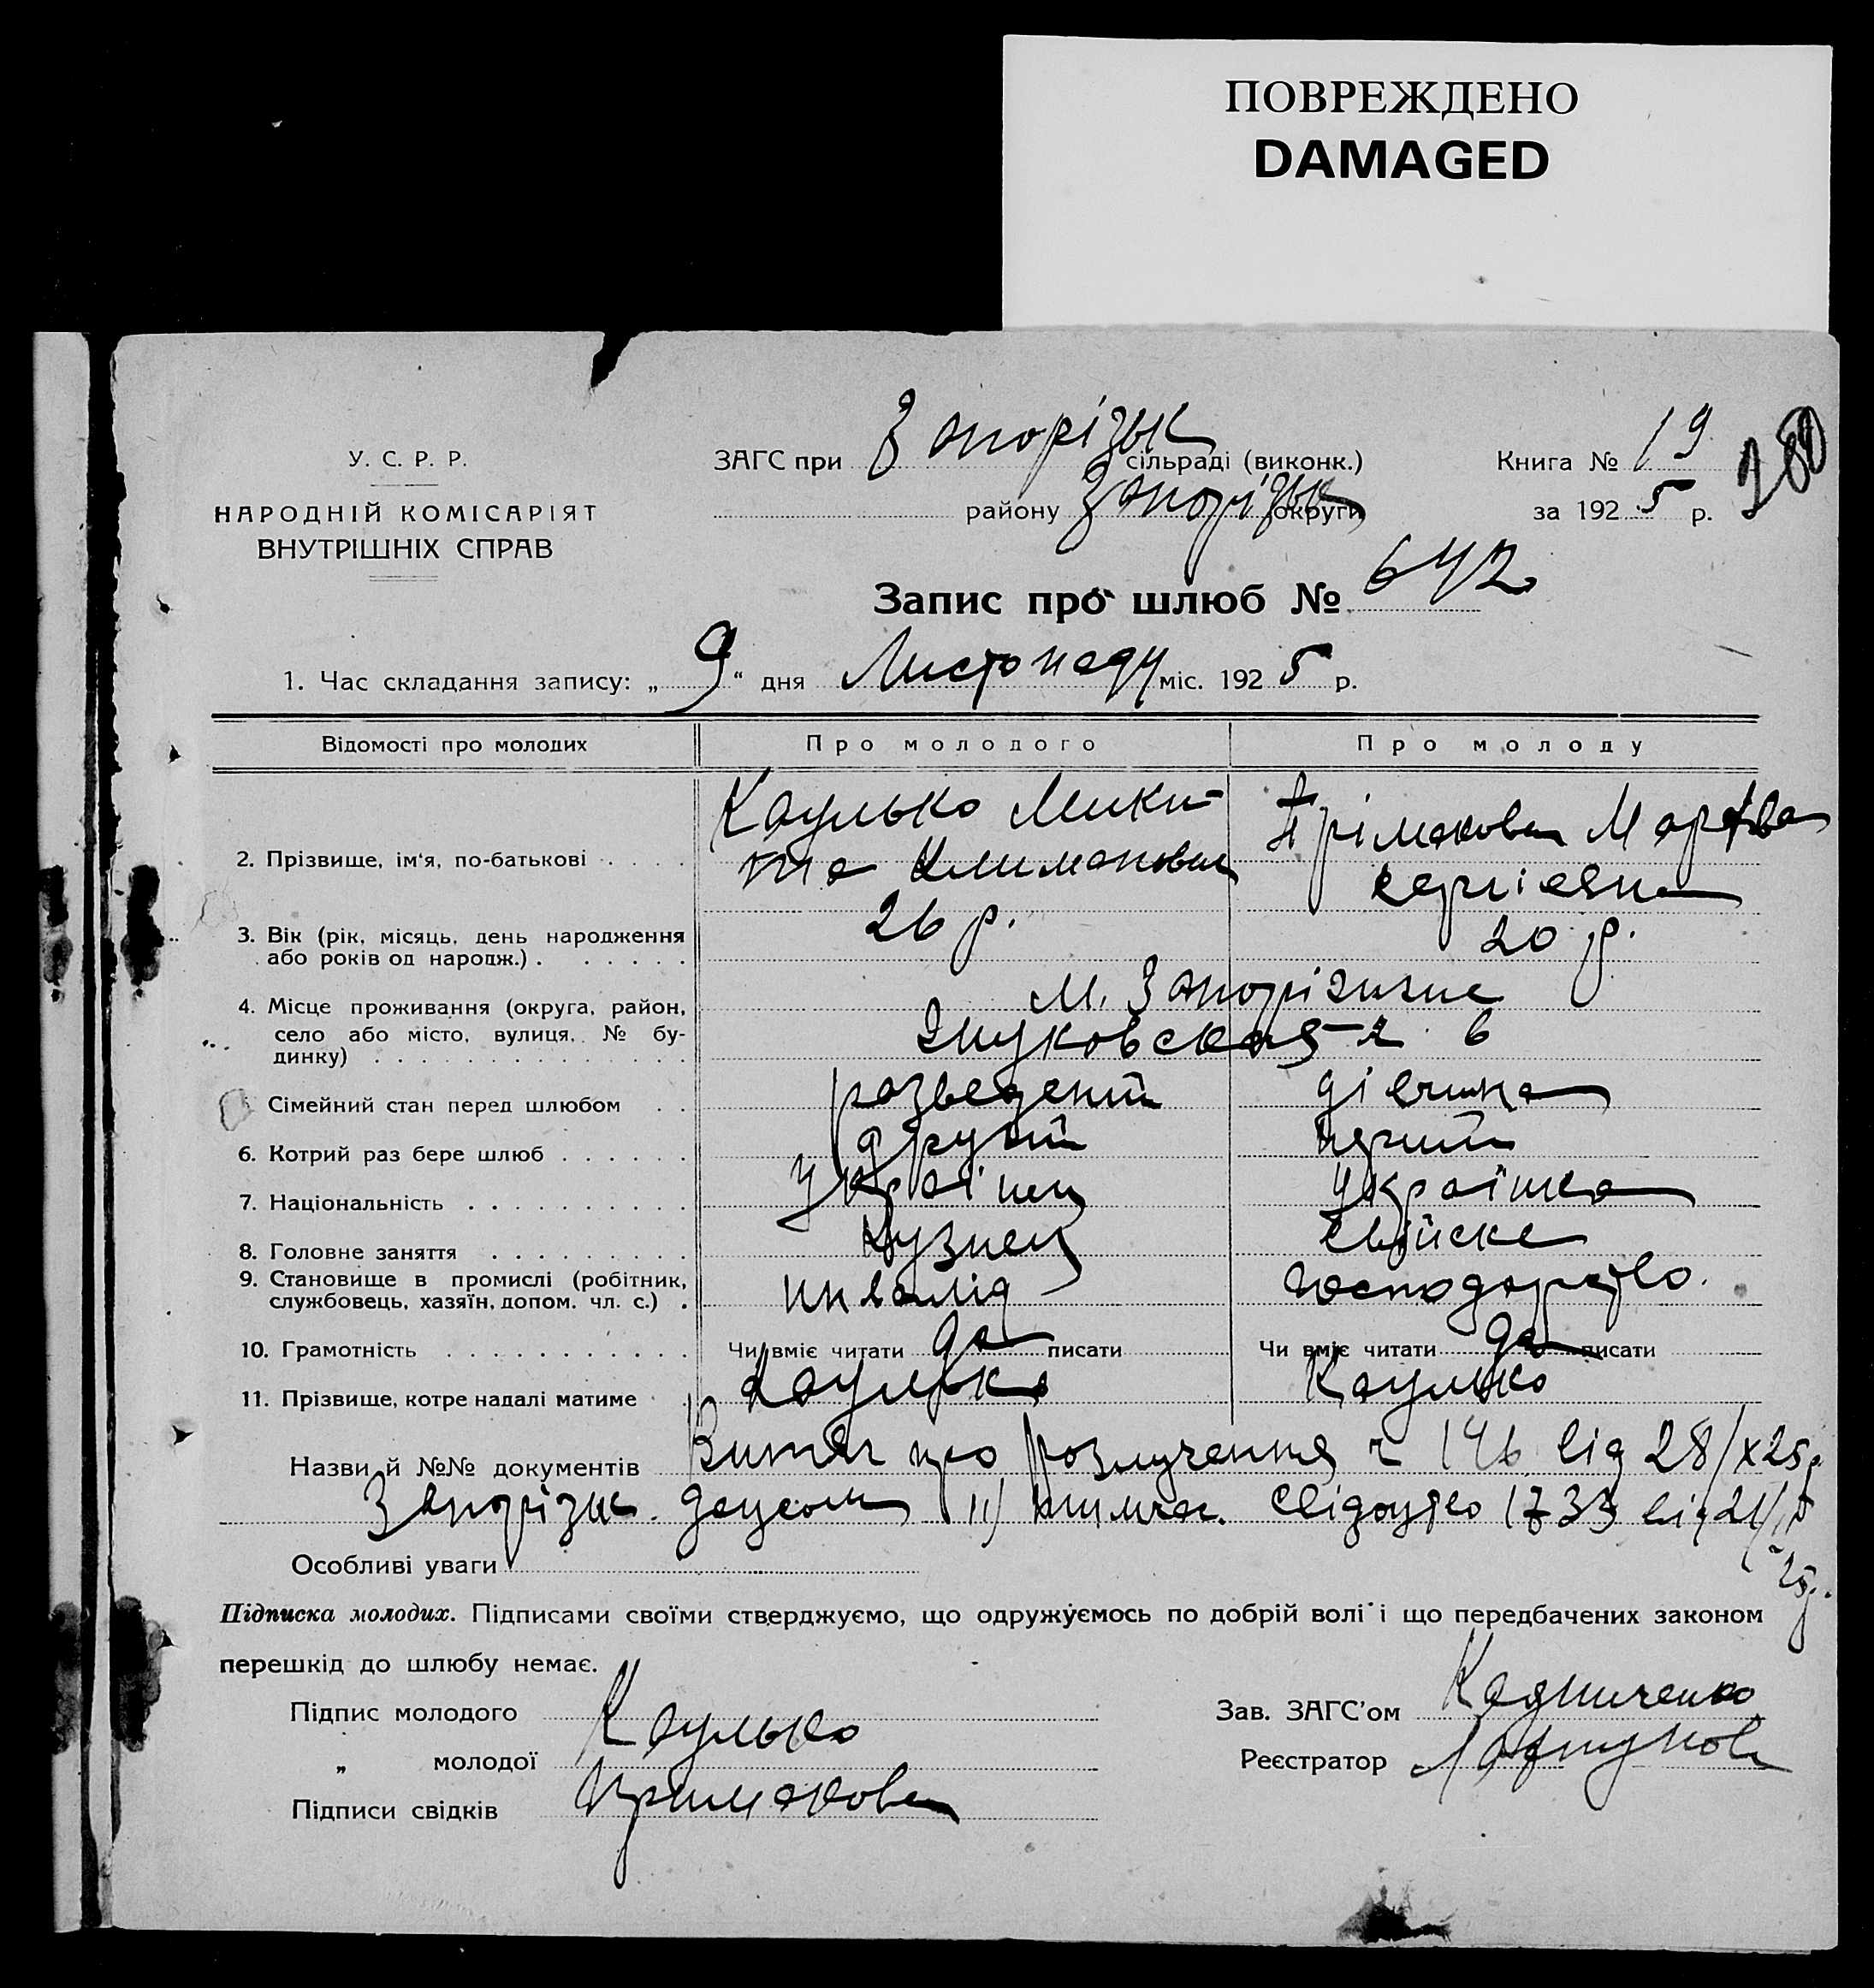 ПОВРЕЖДЕНО
DAMAGED
У. С. Р. Р.
НАРОДНІЙ КОМІСАРІЯТ
ВНУТРІШНІХ СПРАВ
ЗАГС при Запорізьк сільраді (виконк.)
району Запорізьк округи
Книга № 19
за 1925 р.
280
Запис про шлюб № 642
1. Час складання запису: „9“ дня Листопаду міс. 1925 р.
Відомості про молодих
Про молодого
Про молоду
2. Прізвище, ім'я, по-батькові . . . .
Каулько Мики-
та Климанович
Прімакова Марфва
Сергієвна
3. Вік (рік, місяць, день народження
або років од народж.) . . . . . .
26 р.
20 р.
4. Місце проживання (округа, район,
село або місто, вулиця, № бу-
динку) . . . . . . . . . . . . .
м. Запоріжжє
6
Сімейний стан перед шлюбом . .
розведений
дівчина
6. Котрий раз бере шлюб . . . . . .
другий
перший
7. Національність . . . . . . . . . .
Українец
Українка
8. Головне заняття . . . . . . . . .
Кузнец
свійске
9. Становище в промислі (робітник,
службовець, хазяїн, допом. чл. с.) .
инвалід
господарство.
10. Грамотність . . . . . . . . . . .
Чи вміє читати да писати
Чи вміє читати да писати
11. Прізвище, котре надалі матиме .
Каулько
Каулько
Назви й №№ документів Витяг про розлучення ч 146 від 28/X 25р.
Запорізьк. загсом II) тимчас. свідоцтво 1733 від 21/
25р.
Особливі уваги
Підписка молодих. Підписами своїми стверджуємо, що одружуємось по добрій волі і що передбачених законом
перешкід до шлюбу немає.
Підпис молодого Каулько
„ молодої Примакова
Підписи свідків
Зав. ЗАГС'ом
Реєстратор